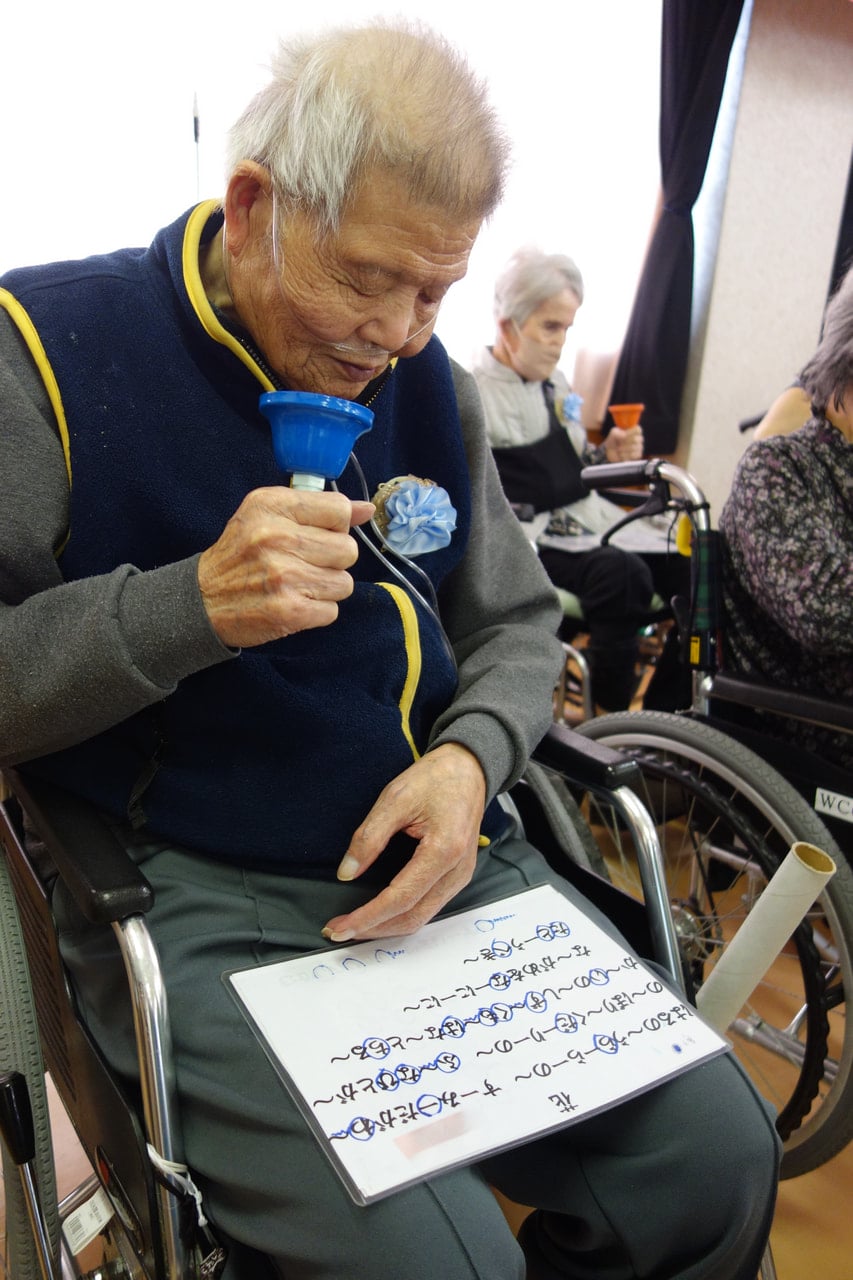 花
はるの〜うら―ら―の〜 す―み―だがわ〜
の〜ぼり〜くだ―り―の〜 ふ〜なびとが〜
か〜いの〜し―ずく〜も〜はな〜とちる〜
な〜がめをな―に―に〜
たと―うべき〜